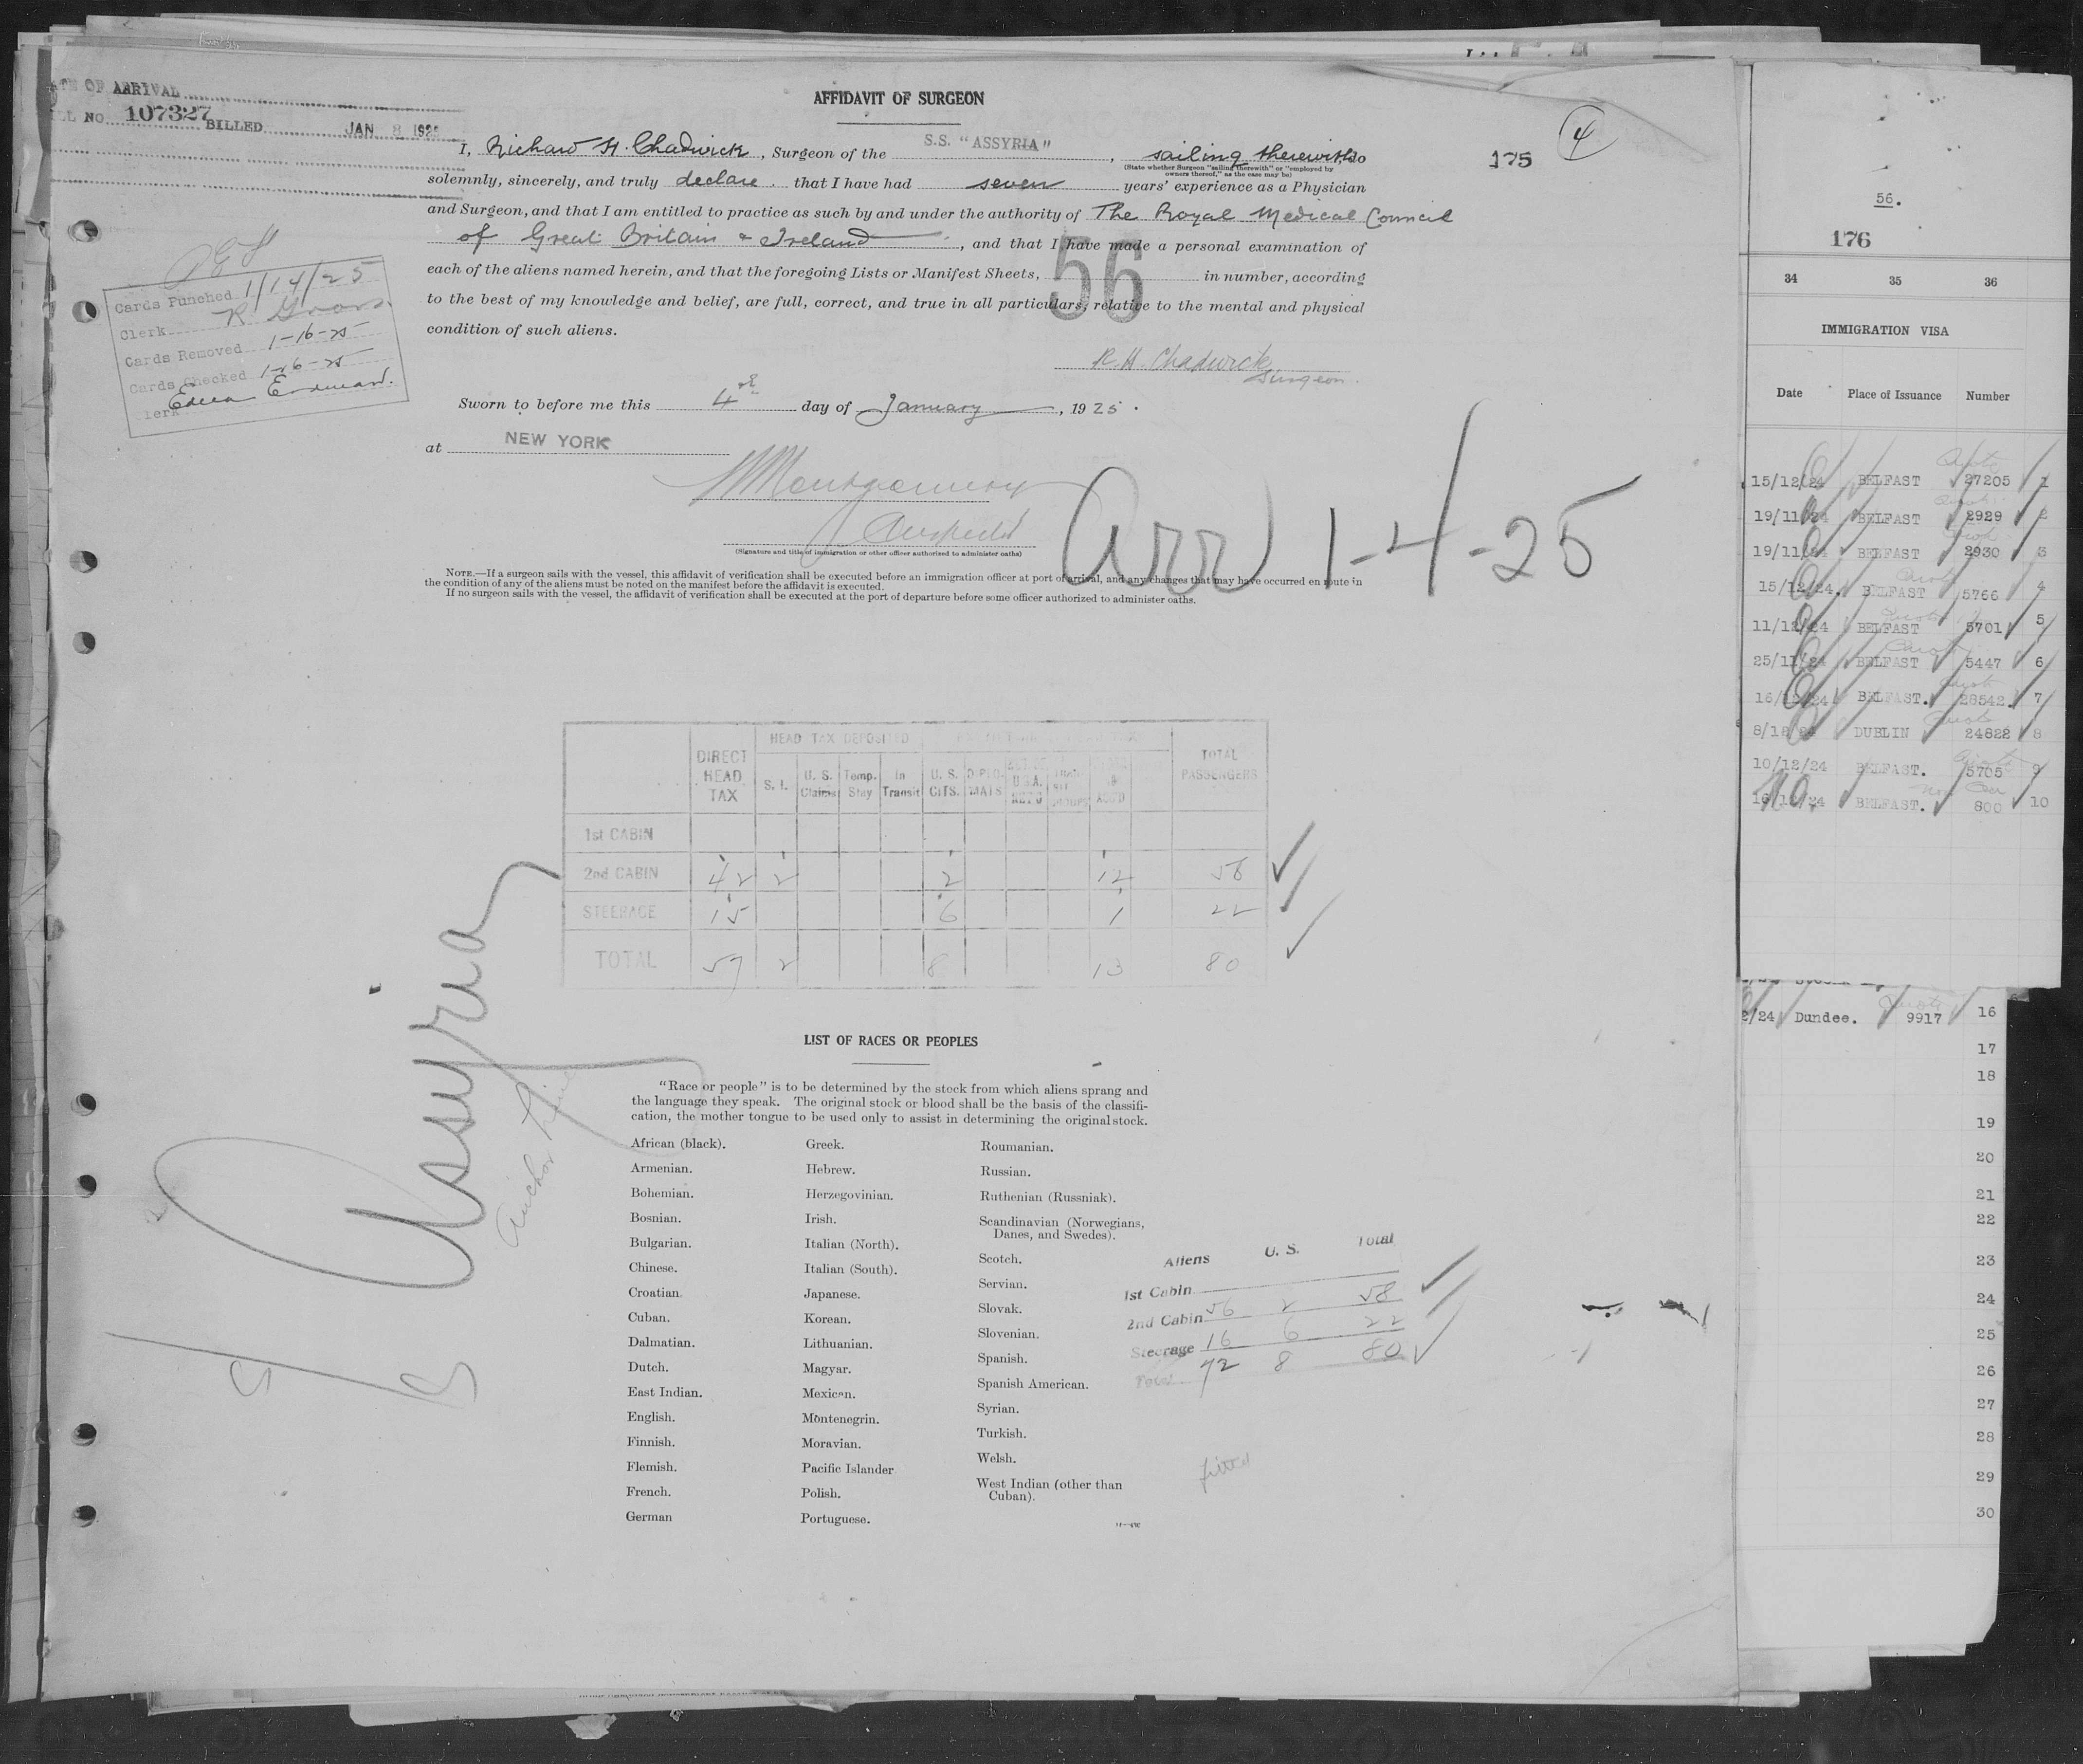 DATE OF ARRIVAL
BILL NO. 107327 BILLED JAN 8 1925
AFFIDAVIT OF SURGEON
4
175
I, Richard H. Chadwick, Surgeon of the S.S. "ASSYRIA", sailing therewith do
(State whether Surgeon "sailing therewith" or "employed by owners thereof," as the case may be)
solemnly, sincerely, and truly declare that I have had seven years' experience as a Physician
and Surgeon, and that I am entitled to practice as such by and under the authority of The Royal Medical Council
of Great Britain & Ireland, and that I have made a personal examination of
each of the aliens named herein, and that the foregoing Lists or Manifest Sheets, 56 in number, according
to the best of my knowledge and belief, are full, correct, and true in all particulars, relative to the mental and physical
condition of such aliens.
R.H. Chadwick
Surgeon.
Sworn to before me this 4th day of January, 1925.
at NEW YORK
Montgomery
(Signature and title of immigration or other officer authorized to administer oaths)
Arr 1-4-25
NOTE.—If a surgeon sails with the vessel, this affidavit of verification shall be executed before an immigration officer at port of arrival, and any changes that may have occurred en route in
the condition of any of the aliens must be noted on the manifest before the affidavit is executed.
If no surgeon sails with the vessel, the affidavit of verification shall be executed at the port of departure before some officer authorized to administer oaths.
Cards Punched 1/14/25
Clerk
Cards Removed 1-16-25
Cards Checked 1-16-25
Clerk
HEAD TAX DEPOSITED
DIRECT HEAD TAX S. I. U. S. Claims Temp. Stay In Transit U. S. CITS. DIPLO-MATS TOTAL PASSENGERS
1st CABIN
2nd CABIN 42 2 2 12 58
STEERAGE 15 6 1 22
TOTAL 57 2 8 13 80
Assyria
Anchor Line
LIST OF RACES OR PEOPLES
"Race or people" is to be determined by the stock from which aliens sprang and
the language they speak. The original stock or blood shall be the basis of the classifi-
cation, the mother tongue to be used only to assist in determining the original stock.
African (black).
Armenian.
Bohemian.
Bosnian.
Bulgarian.
Chinese.
Croatian.
Cuban.
Dalmatian.
Dutch.
East Indian.
English.
Finnish.
Flemish.
French.
German
Greek.
Hebrew.
Herzegovinian.
Irish.
Italian (North).
Italian (South).
Japanese.
Korean.
Lithuanian.
Magyar.
Mexican.
Montenegrin.
Moravian.
Pacific Islander
Polish.
Portuguese.
Roumanian.
Russian.
Ruthenian (Russniak).
Scandinavian (Norwegians,
Danes, and Swedes).
Scotch.
Servian.
Slovak.
Slovenian.
Spanish.
Spanish American.
Syrian.
Turkish.
Welsh.
West Indian (other than
Cuban).
Aliens U. S. Total
1st Cabin
2nd Cabin 56 2 58
Steerage 16 6 22
Total 72 8 80
56.
176
34 35 36
IMMIGRATION VISA
Date Place of Issuance Number
15/12/24 BELFAST 27205 1
19/11/24 BELFAST 2929 2
19/11/24 BELFAST 2930 3
15/12/24. BELFAST 5766 4
11/12/24 BELFAST 5701 5
25/11/24 BELFAST 5447 6
16/12/24 BELFAST. 28542. 7
8/12/24 DUBLIN 24822 8
10/12/24 BELFAST. 5705 9
16/12/24 BELFAST. 800 10
2/24 Dundee. 9917 16
17
18
19
20
21
22
23
24
25
26
27
28
29
30